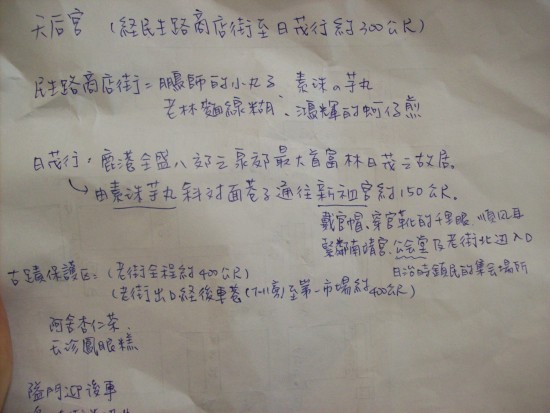 天后宮 (経民生路商店街至日茂行約300公尺)
民生路商店街=鵬師的小丸子、素珠の芋丸
老林麵線糊、鴻輝的蚵仔煎
日茂行:鹿港全盛八郊之泉郊最大首富林日茂之故居。
↳由素珠芋丸斜対面巷子通往新祖宮約150公尺。
戴官帽、穿官靴的千里眼、順風耳
緊鄰南靖宮、公会堂及老街北边入口
日治時鎮民的集会場所
古蹟保護区:(老街全程約400公尺)
(老街出口経後車巷(7-11旁)至第一市場約400公尺)
阿舍杏仁茶.
玉珍鳳眼糕
隘門 後車